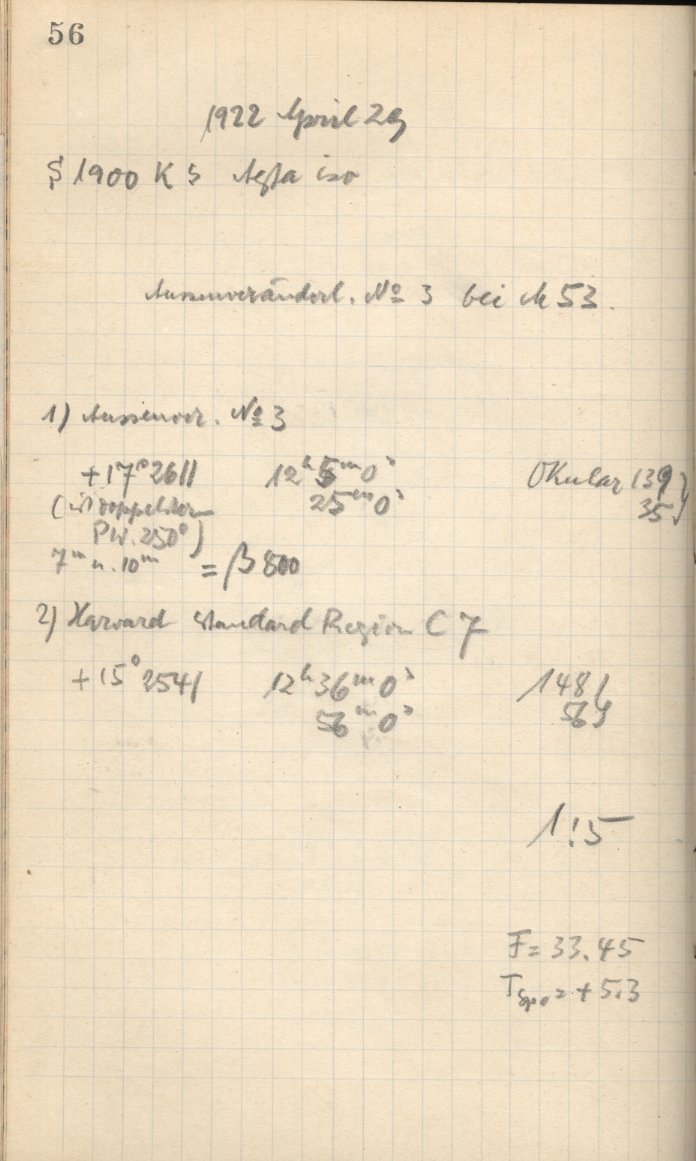 56
1922 April 29
S 1900 K 5 Agfa iso
Aussenveränderl. No 3 bei M 53.
1) Aussenver. No 3
+17° 2611 12h 5m 0s Okular 139
25m 0s 35
(ist Doppelstern
PW. 250°)
7m u. 10m = β 800
2) Harvard Standard Region C 7
+15° 2541 12h 36m 0s 148
56m 0s 56
1!5
F = 33.45
T = +5.3